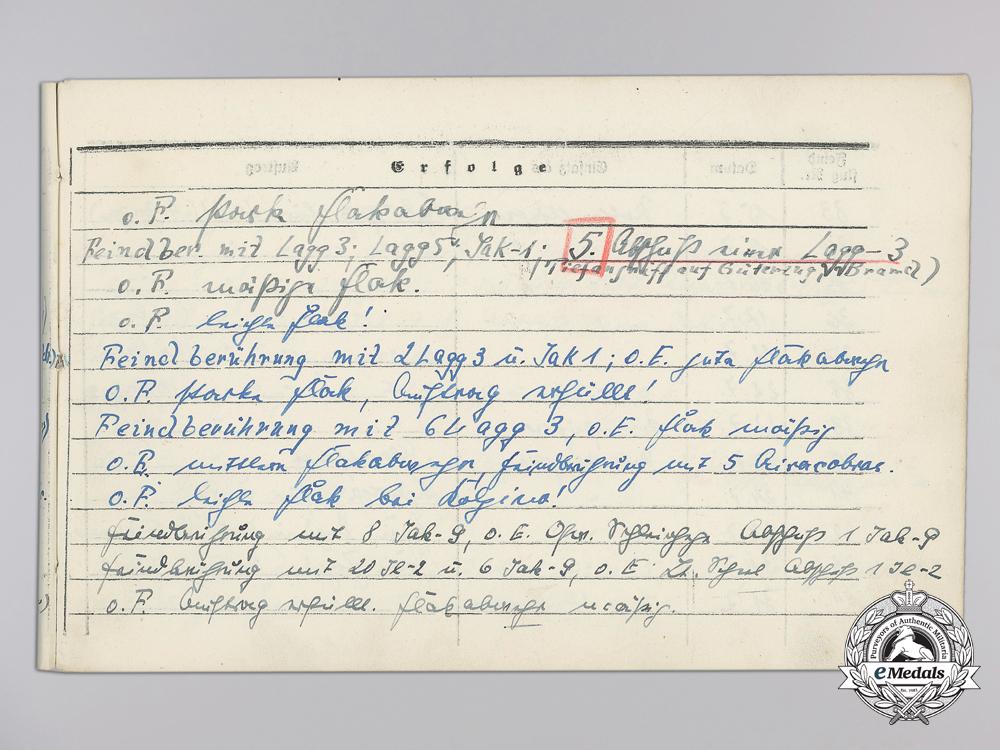 Erfolge
o. F. starke Flakabwehr
Feindber. mit Lagg3; Lagg5, Jak-1; 5. Abschuß einer Lagg-3
(Tiefangriff auf Güterzug, in Brand)
o. F. mäßige Flak.
o. F. leichte Flak!
Feindberührung mit 2 Lagg3 u. Jak1; o. E. gute Flakabwehr
o. F. starke Flak, Auftrag erfüllt!
Feindberührung mit 6 Lagg 3, o. E. Flak mäßig
o. E. mittlere Flakabwehr, Feindberührung mit 5 Airacobras.
o. F. leichte Flak bei Kolpino!
Feindberührung mit 8 Jak-9, o. E. Ofw. Abschuß 1 Jak-9
Feindberührung mit 20 Il-2 u. 6 Jak-9, o. E. Lt. Abschuß 1 Il-2
o. F. Auftrag erfüllt. Flakabwehr mäßig.
Purveyors of Authentic Militaria
eMedals